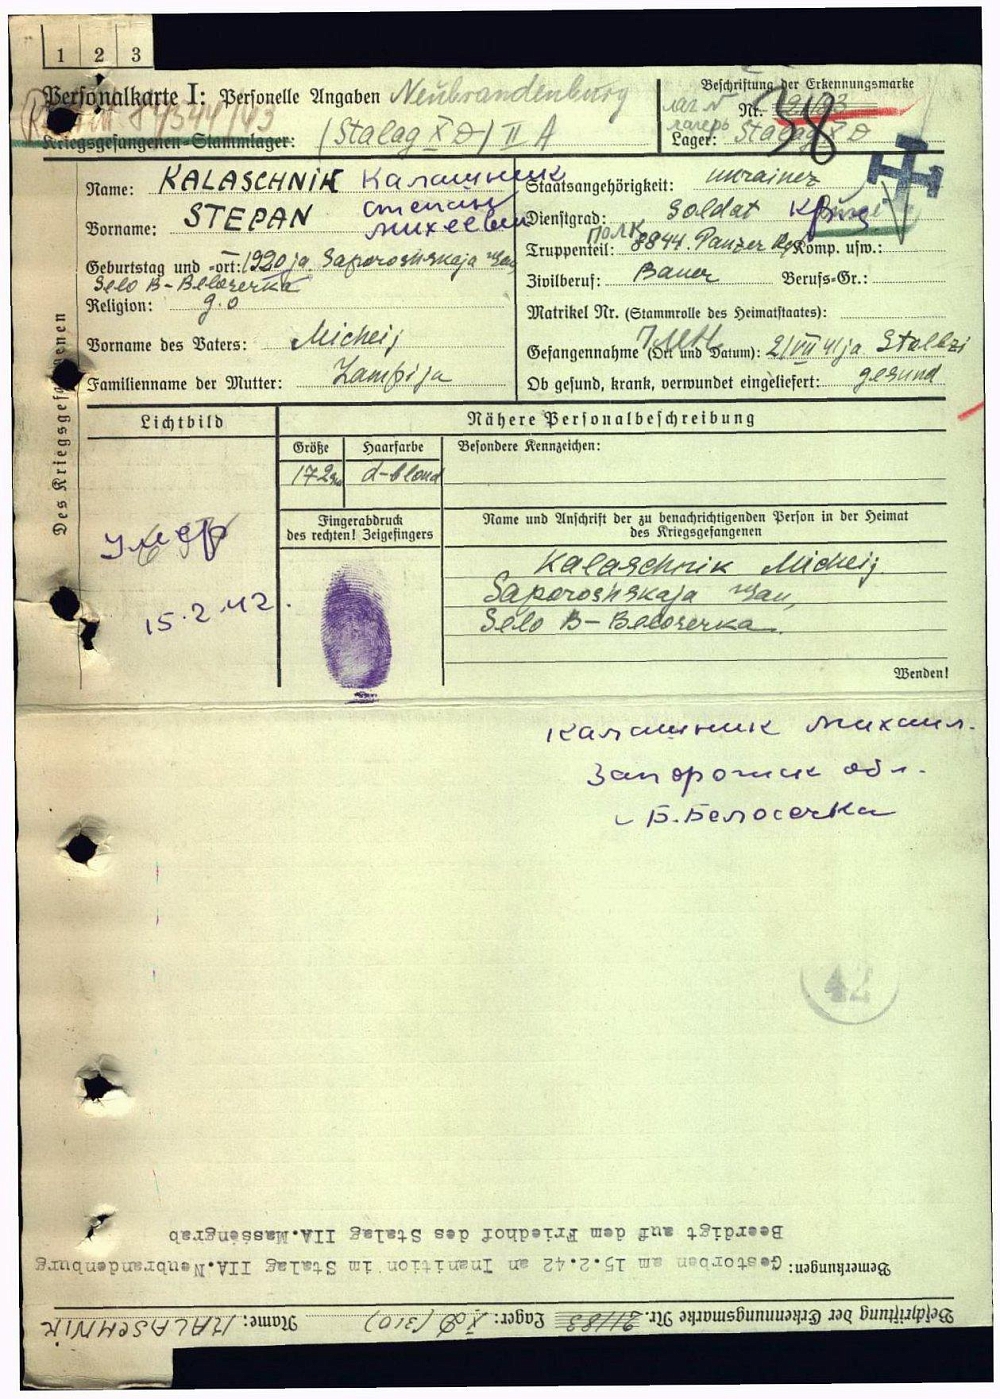 1 2 3
Personalkarte I: Personelle Angaben Neubrandenburg
Kriegsgefangenen-Stammlager: (Stalag X D) II A
Beschriftung der Erkennungsmarke
Nr. 38
лагерь Lager: Stalag X D
Des Kriegsgefangenen
Name: KALASCHNIK Калашник
Vorname: STEPAN Степан
Михеевич
Geburtstag und -ort: 1920 ja Saporoshskaja Gau
Selo B-Belozerka
Religion: g.o
Vorname des Vaters: Micheij
Familienname der Mutter:
Staatsangehörigkeit: ukrainer
Dienstgrad: Soldat
Truppenteil: полк 8844. Panzer Rg Komp. usw.:
Zivilberuf: Bauer Berufs-Gr.:
Matrikel Nr. (Stammrolle des Heimatstaates):
Gefangennahme (Ort und Datum): 2/VII 41 ja Stolbzi
Ob gesund, krank, verwundet eingeliefert: gesund
Lichtbild
Nähere Personalbeschreibung
Größe Haarfarbe Besondere Kennzeichen:
172 d-blond
Fingerabdruck
des rechten! Zeigefingers
Name und Anschrift der zu benachrichtigenden Person in der Heimat
des Kriegsgefangenen
Kalaschnik Micheij
Saporoshskaja Gau,
Selo B-Belozerka.
Wenden!
умер
15.2.42.
Калашник Михаил.
Запорожск обл.
с Б.Белосерка
42
Beschriftung der Erkennungsmarke Nr. 21183 Lager: X D (310) Name: KALASCHNIK
Bemerkungen: Gestorben am 15.2.42 an Inanition im Stalag IIA.Neubrandenburg
Beerdigt auf dem Friedhof des Stalag IIA.Massengrab